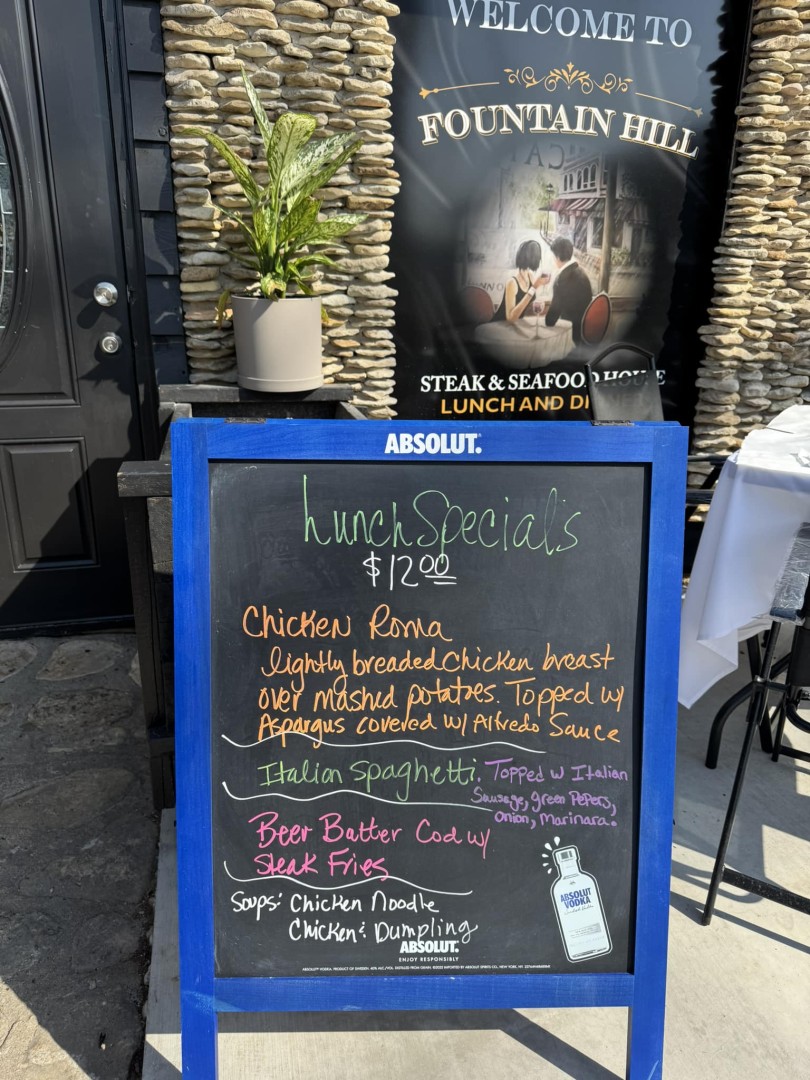 WELCOME TO
FOUNTAIN HILL
STEAK & SEAFOOD HOUSE
LUNCH AND DINNER
ABSOLUT.
Lunch Special's
$12.00
Chicken Roma
lightly breaded chicken breast
over mashed potatoes. Topped w/
Aspargus covered w/ Alfredo Sauce
Italian Spaghetti. Topped w Italian
Sausage, green Pepers,
onion, Marinara.
Beer Batter Cod w/
Steak Fries
Soups: Chicken Noodle
Chicken & Dumpling
ABSOLUT
VODKA
ABSOLUT.
ENJOY RESPONSIBLY